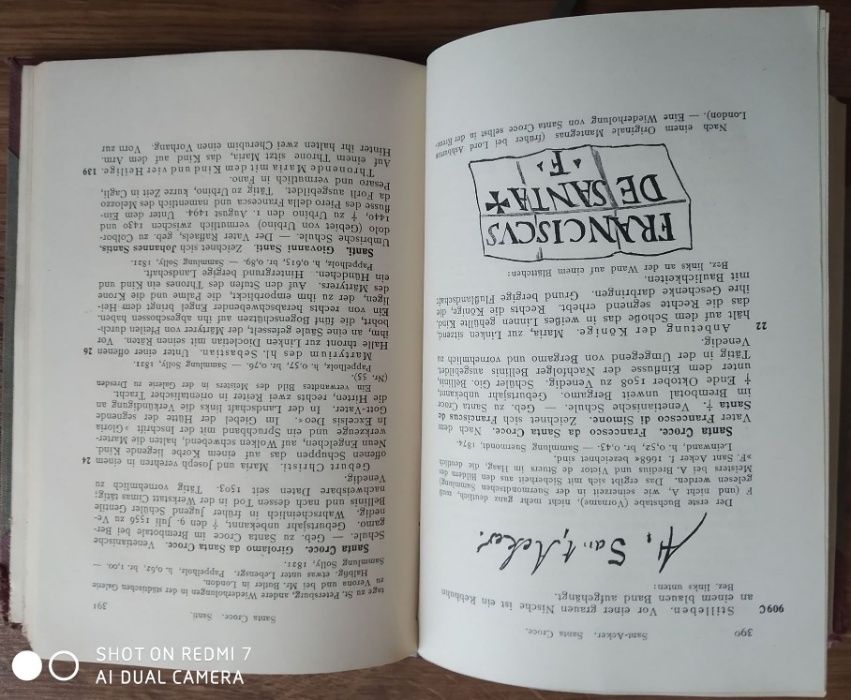 390
Sant-Acker. Santa Croce.
909C
Stilleben. Vor einer grauen Nische ist ein Rebhuhn
an einem blauen Band aufgehängt.
Bez. links unten:
A. Sant, Acker.
Der erste Buchstabe (Vorname), nicht mehr ganz deutlich, muß
F (und nicht A, wie seinerzeit in der Suermondtschen Sammlung)
gelesen werden. Das ergibt sich mit Sicherheit aus den Bildern des
Meisters bei A. Bredius und Victor de Stuers im Haag, die deutlich
»F. Sant Acker f. 1668« bezeichnet sind.
Leinwand, h. 0,52, br. 0,43. — Sammlung Suermondt, 1874.
Santa Croce. Francesco da Santa Croce. Nach dem
Vater Francesco di Simone. Zeichnet sich Franciscus de
Santa †. Venetianische Schule. — Geb. zu Santa Croce
im Brembotal unweit Bergamo. Geburtsjahr unbekannt,
† Ende Oktober 1508 zu Venedig. Schüler Gio. Bellinis,
unter dem Einflusse der Nachfolger Bellinis ausgebildet.
Tätig in der Umgegend von Bergamo und vornehmlich zu
Venedig.
22
Anbetung der Könige. Maria, zur Linken sitzend,
hält auf dem Schoße das in weißes Linnen gehüllte Kind,
das die Rechte segnend erhebt. Rechts die Könige, die
ihre Geschenke darbringen. Grund bergige Flußlandschaft
mit Baulichkeiten.
Bez. links an der Wand auf einem Blättchen:
FRANCISCVS
DE SANTA ✠
F
Nach einem Originale Mantegnas (früher bei Lord Ashburton
London). — Eine Wiederholung von Santa Croce selbst in der
Santa Croce. Santi.
391
tage zu St. Petersburg, andere Wiederholungen in der städtischen Galerie
zu Verona und bei Mr. Butler in London.
Halbfig. etwas unter Lebensgr. Pappelholz, h. 0,62, br. 1,00. —
Sammlung Solly, 1821.
Santa Croce. Girolamo da Santa Croce. Venetianische
Schule. — Geb. zu Santa Croce im Brembotale bei Ber-
gamo. Geburtsjahr unbekannt, † den 9. Juli 1556 zu Ve-
nedig. Wahrscheinlich in früher Jugend Schüler Gentile
Bellinis und nach dessen Tod in der Werkstatt Cimas tätig;
nachweisbare Daten seit 1503. Tätig vornehmlich zu
Venedig.
24
Geburt Christi. Maria und Joseph verehren in einem
offenen Schuppen das auf einem Korbe liegende Kind.
Neun Engelchen, auf Wolken schwebend, halten die Marter-
werkzeuge und ein Spruchband mit der Inschrift »Gloria
in Excelsis Deo«. Im Giebel der Hütte der segnende
Gott-Vater. In der Landschaft links die Verkündigung an
die Hirten, rechts zwei Reiter in orientalischer Tracht.
Ein verwandtes Bild des Meisters in der Galerie zu Dresden
(Nr. 55).
Pappelholz, h. 0,57, br. 0,76. — Sammlung Solly, 1821.
26
Martyrium des hl. Sebastian. Unter einer offenen
Halle thront zur Linken Diocletian mit seinen Räten. Vor
ihm, an eine Säule gefesselt, der Märtyrer von Pfeilen durch-
bohrt, die fünf Bogenschützen auf ihn abgeschossen haben.
Ein von rechts herabschwebender Engel bringt dem Hei-
ligen, der zu ihm emporblickt, die Palme und die Krone
des Märtyrers. Auf den Stufen des Thrones ein Kind und
ein Hündchen. Hintergrund bergige Landschaft.
Pappelholz, h. 0,615, br. 0,89. — Sammlung Solly, 1821.
Santi. Giovanni Santi. Zeichnet sich Johannes Santis.
Umbrische Schule. — Der Vater Raffaels, geb. zu Colbor-
dolo (Gebiet von Urbino) vermutlich zwischen 1430 und
1440, † zu Urbino den 1. August 1494. Unter dem Ein-
flusse des Piero della Francesca und namentlich des Melozzo
da Forlì ausgebildet. Tätig zu Urbino, kurze Zeit in Cagli,
Pesaro und vermutlich in Fano.
139
Thronende Maria mit dem Kind und vier Heilige.
Auf einem Throne sitzt Maria, das Kind auf dem Arm.
Hinter ihr halten zwei Cherubim einen Vorhang. Vorn zur
SHOT ON REDMI 7
AI DUAL CAMERA